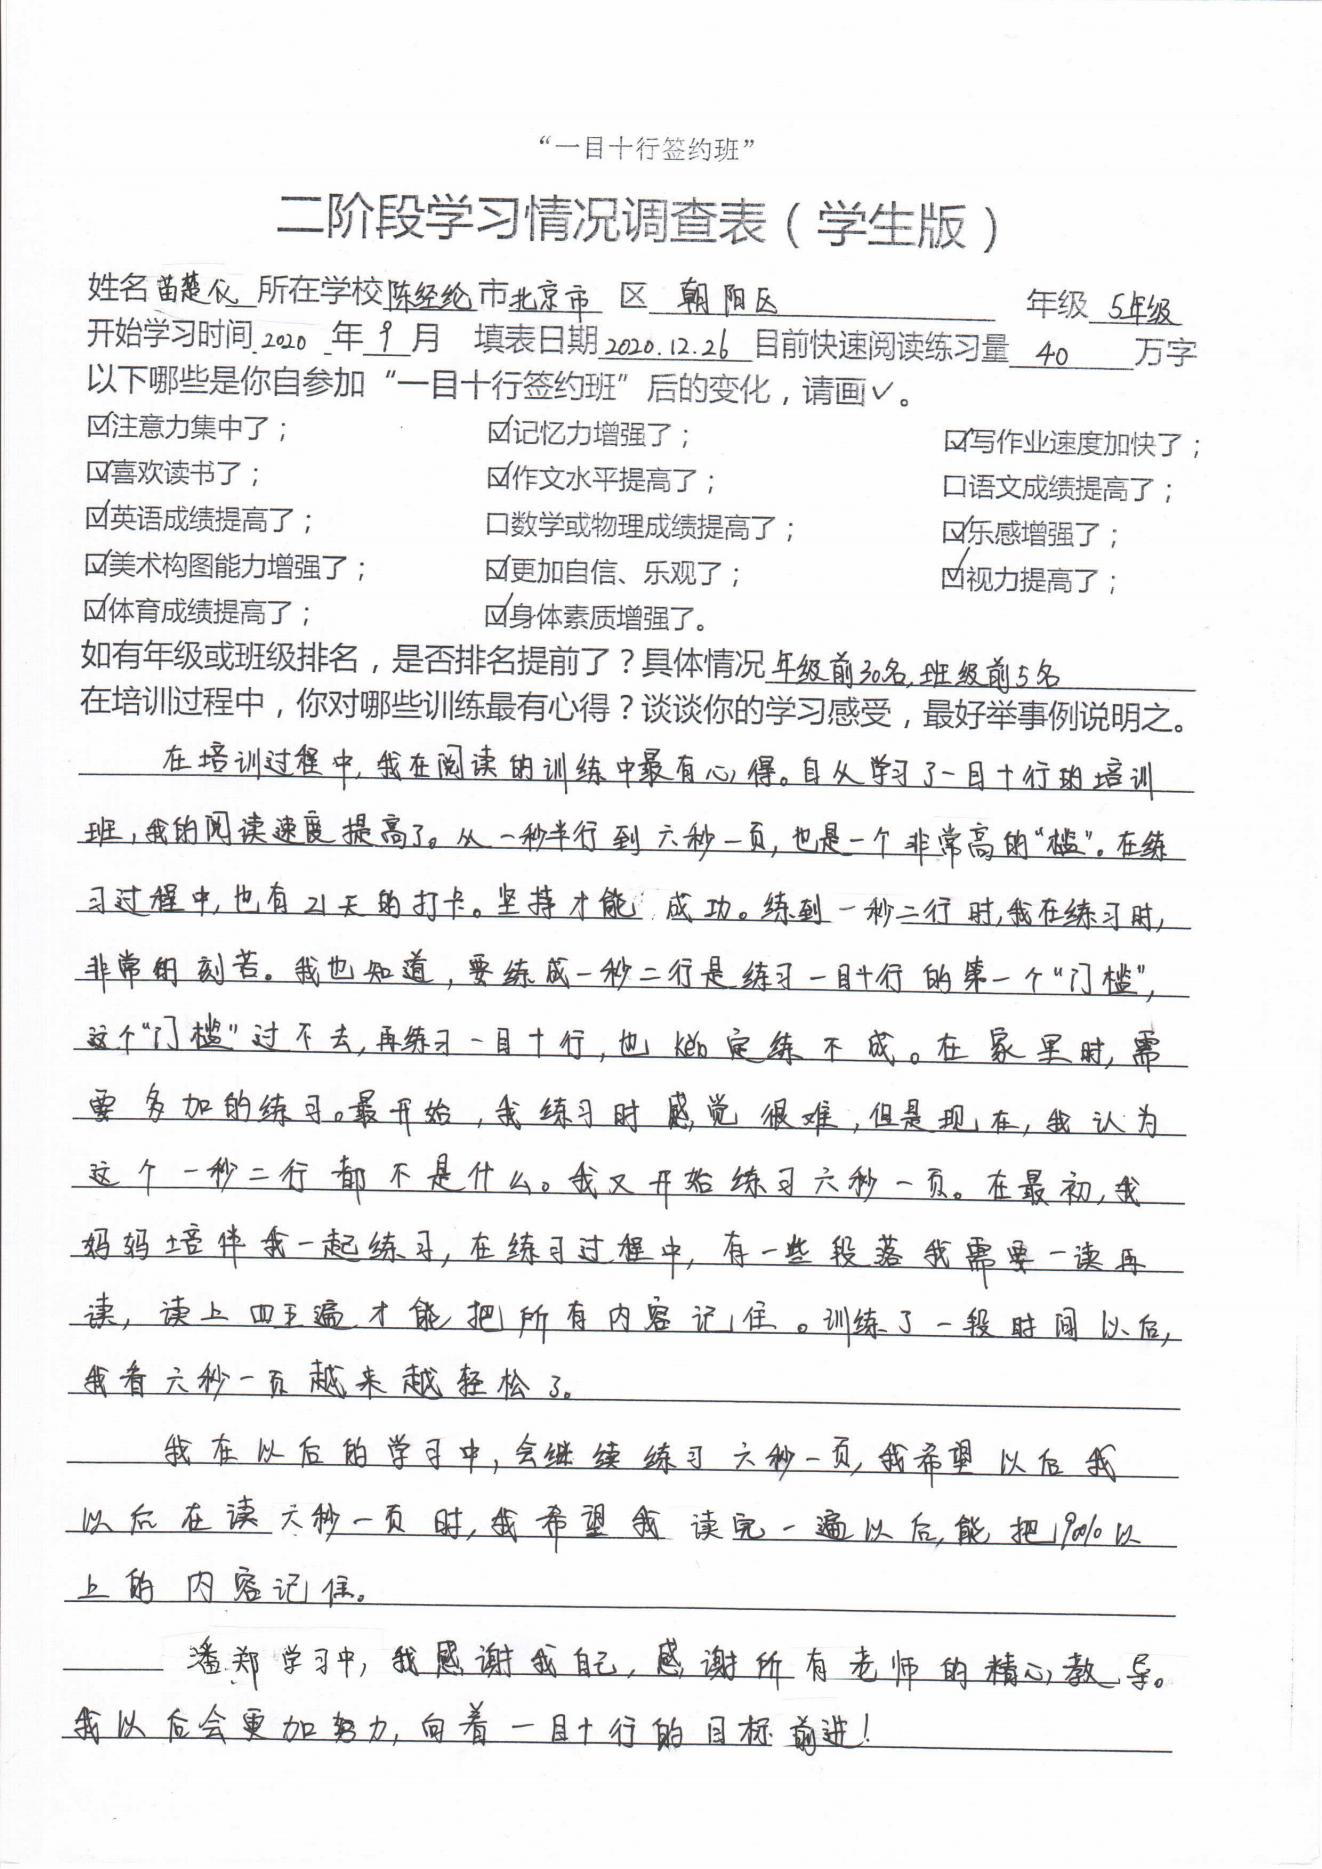 “一目十行签约班”
二阶段学习情况调查表（学生版）
姓名苗楚仪 所在学校陈经纶市北京市 区 朝阳区 年级 5年级
开始学习时间 2020 年 9 月 填表日期2020.12.26 目前快速阅读练习量 40 万字
以下哪些是你自参加“一目十行签约班”后的变化，请画✓。
☑注意力集中了； ☑记忆力增强了； ☑写作业速度加快了；
☑喜欢读书了； ☑作文水平提高了； 口语文成绩提高了；
☑英语成绩提高了； 口数学或物理成绩提高了； ☑乐感增强了；
☑美术构图能力增强了； ☑更加自信、乐观了； ☑视力提高了；
☑体育成绩提高了； ☑身体素质增强了。
如有年级或班级排名，是否排名提前了？具体情况年级前30名,班级前5名
在培训过程中，你对哪些训练最有心得？谈谈你的学习感受，最好举事例说明之。
在培训过程中,我在阅读的训练中最有心得。自从学习了一目十行的培训
班,我的阅读速度提高了。从一秒半行到六秒一页,也是一个非常高的“槛”。在练
习过程中,也有21天的打卡。坚持才能成功。练到一秒二行时,我在练习时,
非常的刻苦。我也知道,要练成一秒二行是练习一目十行的第一个“门槛”,
这个“门槛”过不去,再练习一目十行,也kěn定练不成。在家里时,需
要多加的练习。最开始,我练习时感觉很难,但是现在,我认为
这个一秒二行都不是什么。我又开始练习六秒一页。在最初,我
妈妈培伴我一起练习,在练习过程中,有一些段落我需要一读再
读,读上四五遍才能把所有内容记住。训练了一段时间以后,
我看六秒一页越来越轻松了。
我在以后的学习中,会继续练习六秒一页,我希望以后我
以后在读六秒一页时,我希望我读完一遍以后,能把90%以
上的内容记住。
潘郑学习中,我感谢我自己,感谢所有老师的精心教导。
我以后会更加努力,向着一目十行的目标前进!